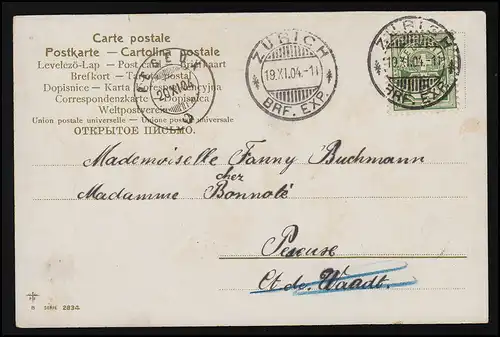 Carte postale
Postkarte — Cartolina postale
Levelező-Lap — Post card — Briefkaart
Brefkort — Tarjeta postal
Dopisnice — Karta Korespondencyjna
Correspondenzkarte — Dopisnica
Weltpostverein
Union postale universelle — Unione postale universale
ОТКРЫТОЕ ПИСЬМО.
ZÜRICH
19.XI.04.-11
BRF. EXP.
ZÜRICH
19.XI.04.-11
BRF. EXP.
Mademoiselle Fanny Buchmann
chez
Madamme Bonnolé
Peseuse
Ct. de. Waadt.
SERIE 283A